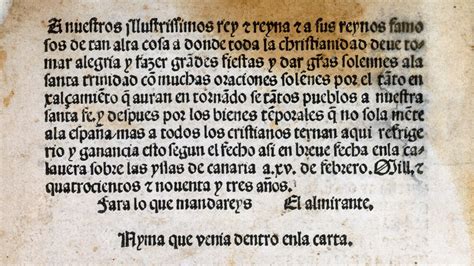 A nuestros illustrissimos rey ⁊ reyna ⁊ a sus reynos famo
sos de tan alta cosa a donde toda la christianidad deue to-
mar alegria y fazer grādes fiestas y dar grās solennes ala
santa trinidad cō muchas oraciones solēnes por el tāto en
xalçamiēto q̄ auran en tornādo se tātos pueblos a nuestra
santa fe. y despues por los bienes tēporales q̄ no sola mēte
ala españa mas a todos los cristianos ternan aqui refrige
rio y ganancia esto segun el fecho asi en breue fecha enla ca
lauera sobre las yslas de canaria a.xv. de febrero. Mill. ⁊
quatrocientos ⁊ nouenta y tres años.
Fara lo que mandareys El almirante.
Nyma que venia dentro enla carta.